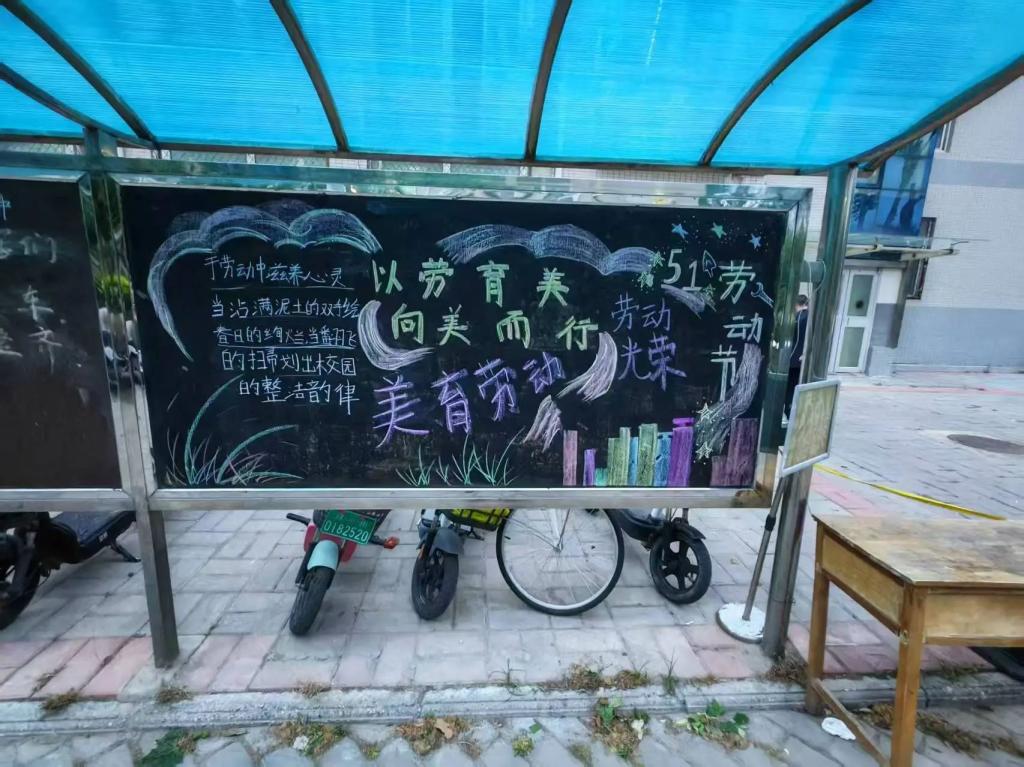 于劳动中滋养人心灵
当沾满泥土的双手绘
春日的绚烂,当翻飞
的扫帚划出校园
的整洁韵律
以劳育美
向美而行
美育劳动
劳动
光荣
51
劳动节
0182520